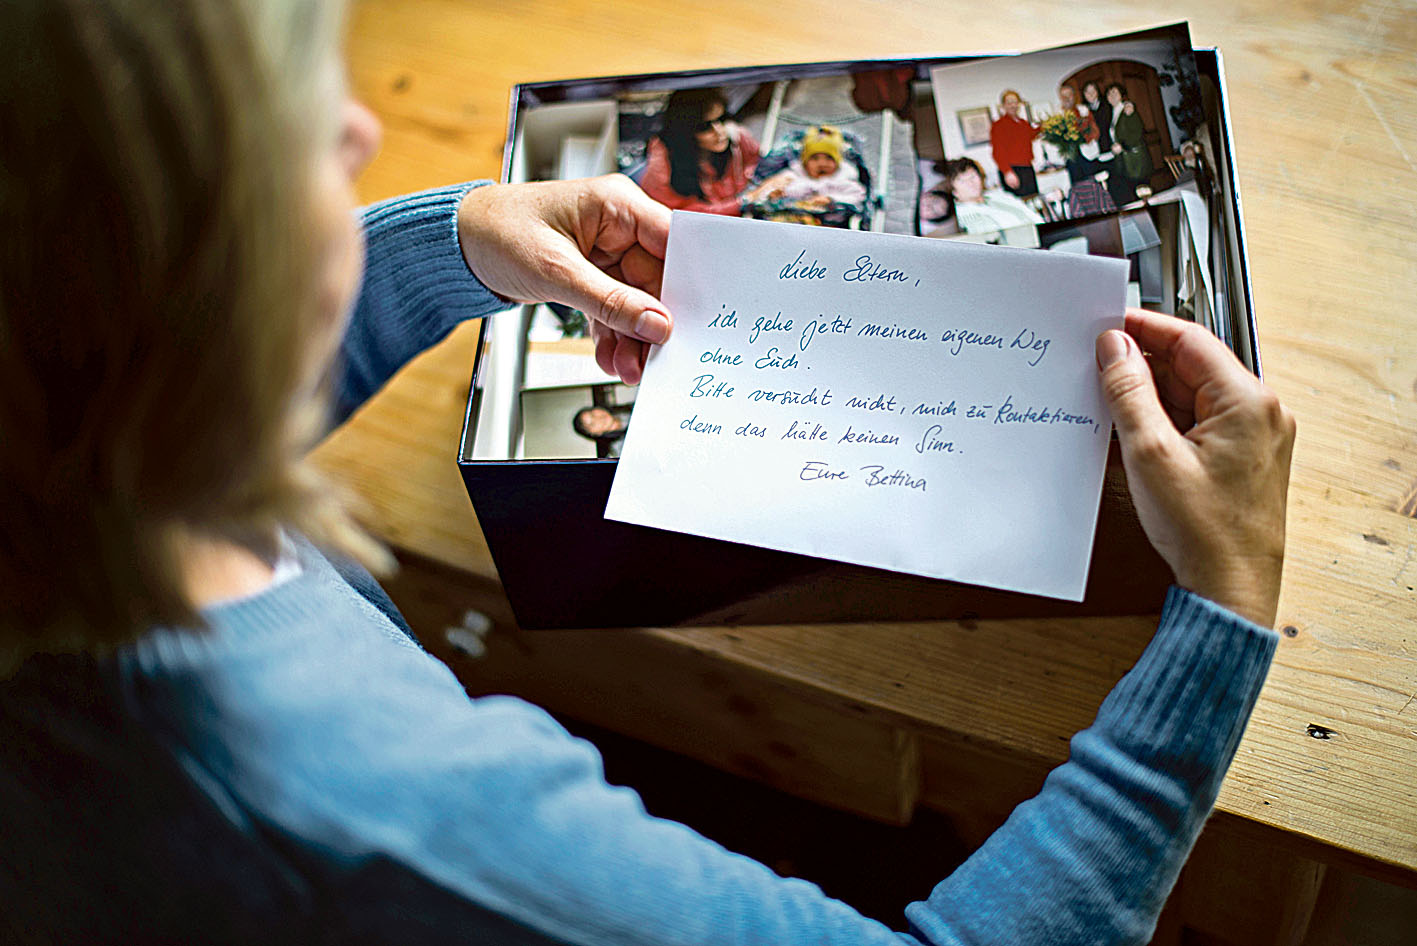 Liebe Eltern,
ich gehe jetzt meinen eigenen Weg
ohne Euch.
Bitte versucht nicht, mich zu kontaktieren,
denn das hätte keinen Sinn.
Eure Bettina